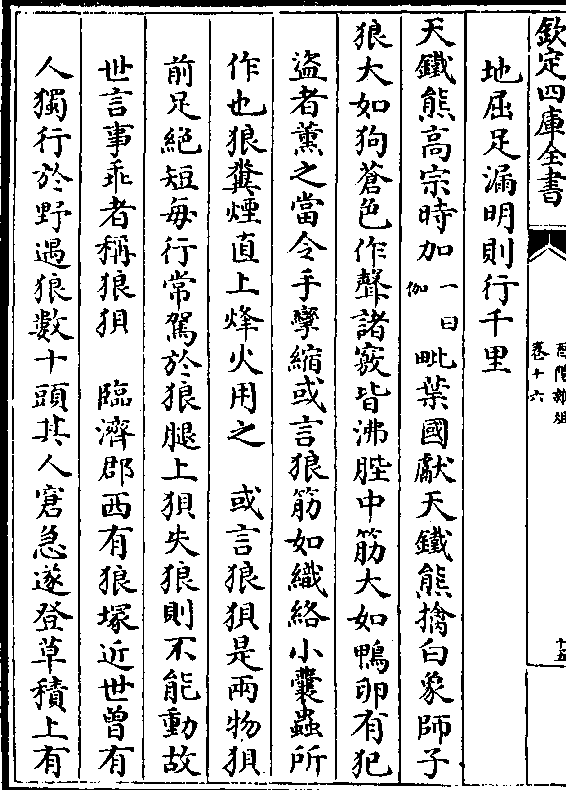 欽定四庫全書
酉陽雜俎
卷十六
十五
地屈足漏明則行千里
天鐵熊高宗時加一曰伽毗葉國獻天鐵熊擒白象師子
狼大如狗蒼色作聲諸竅皆沸䏶中筋大如鴨卵有犯
盜者薰之當令手攣縮或言狼筋如織絡小囊蟲所
作也狼糞煙直上烽火用之　或言狼狽是兩物狽
前足絕短每行常駕於狼腿上狽失狼則不能動故
世言事乖者稱狼狽　臨濟郡西有狼塚近世曾有
人獨行於野遇狼數十頭其人窘急遂登草積上有